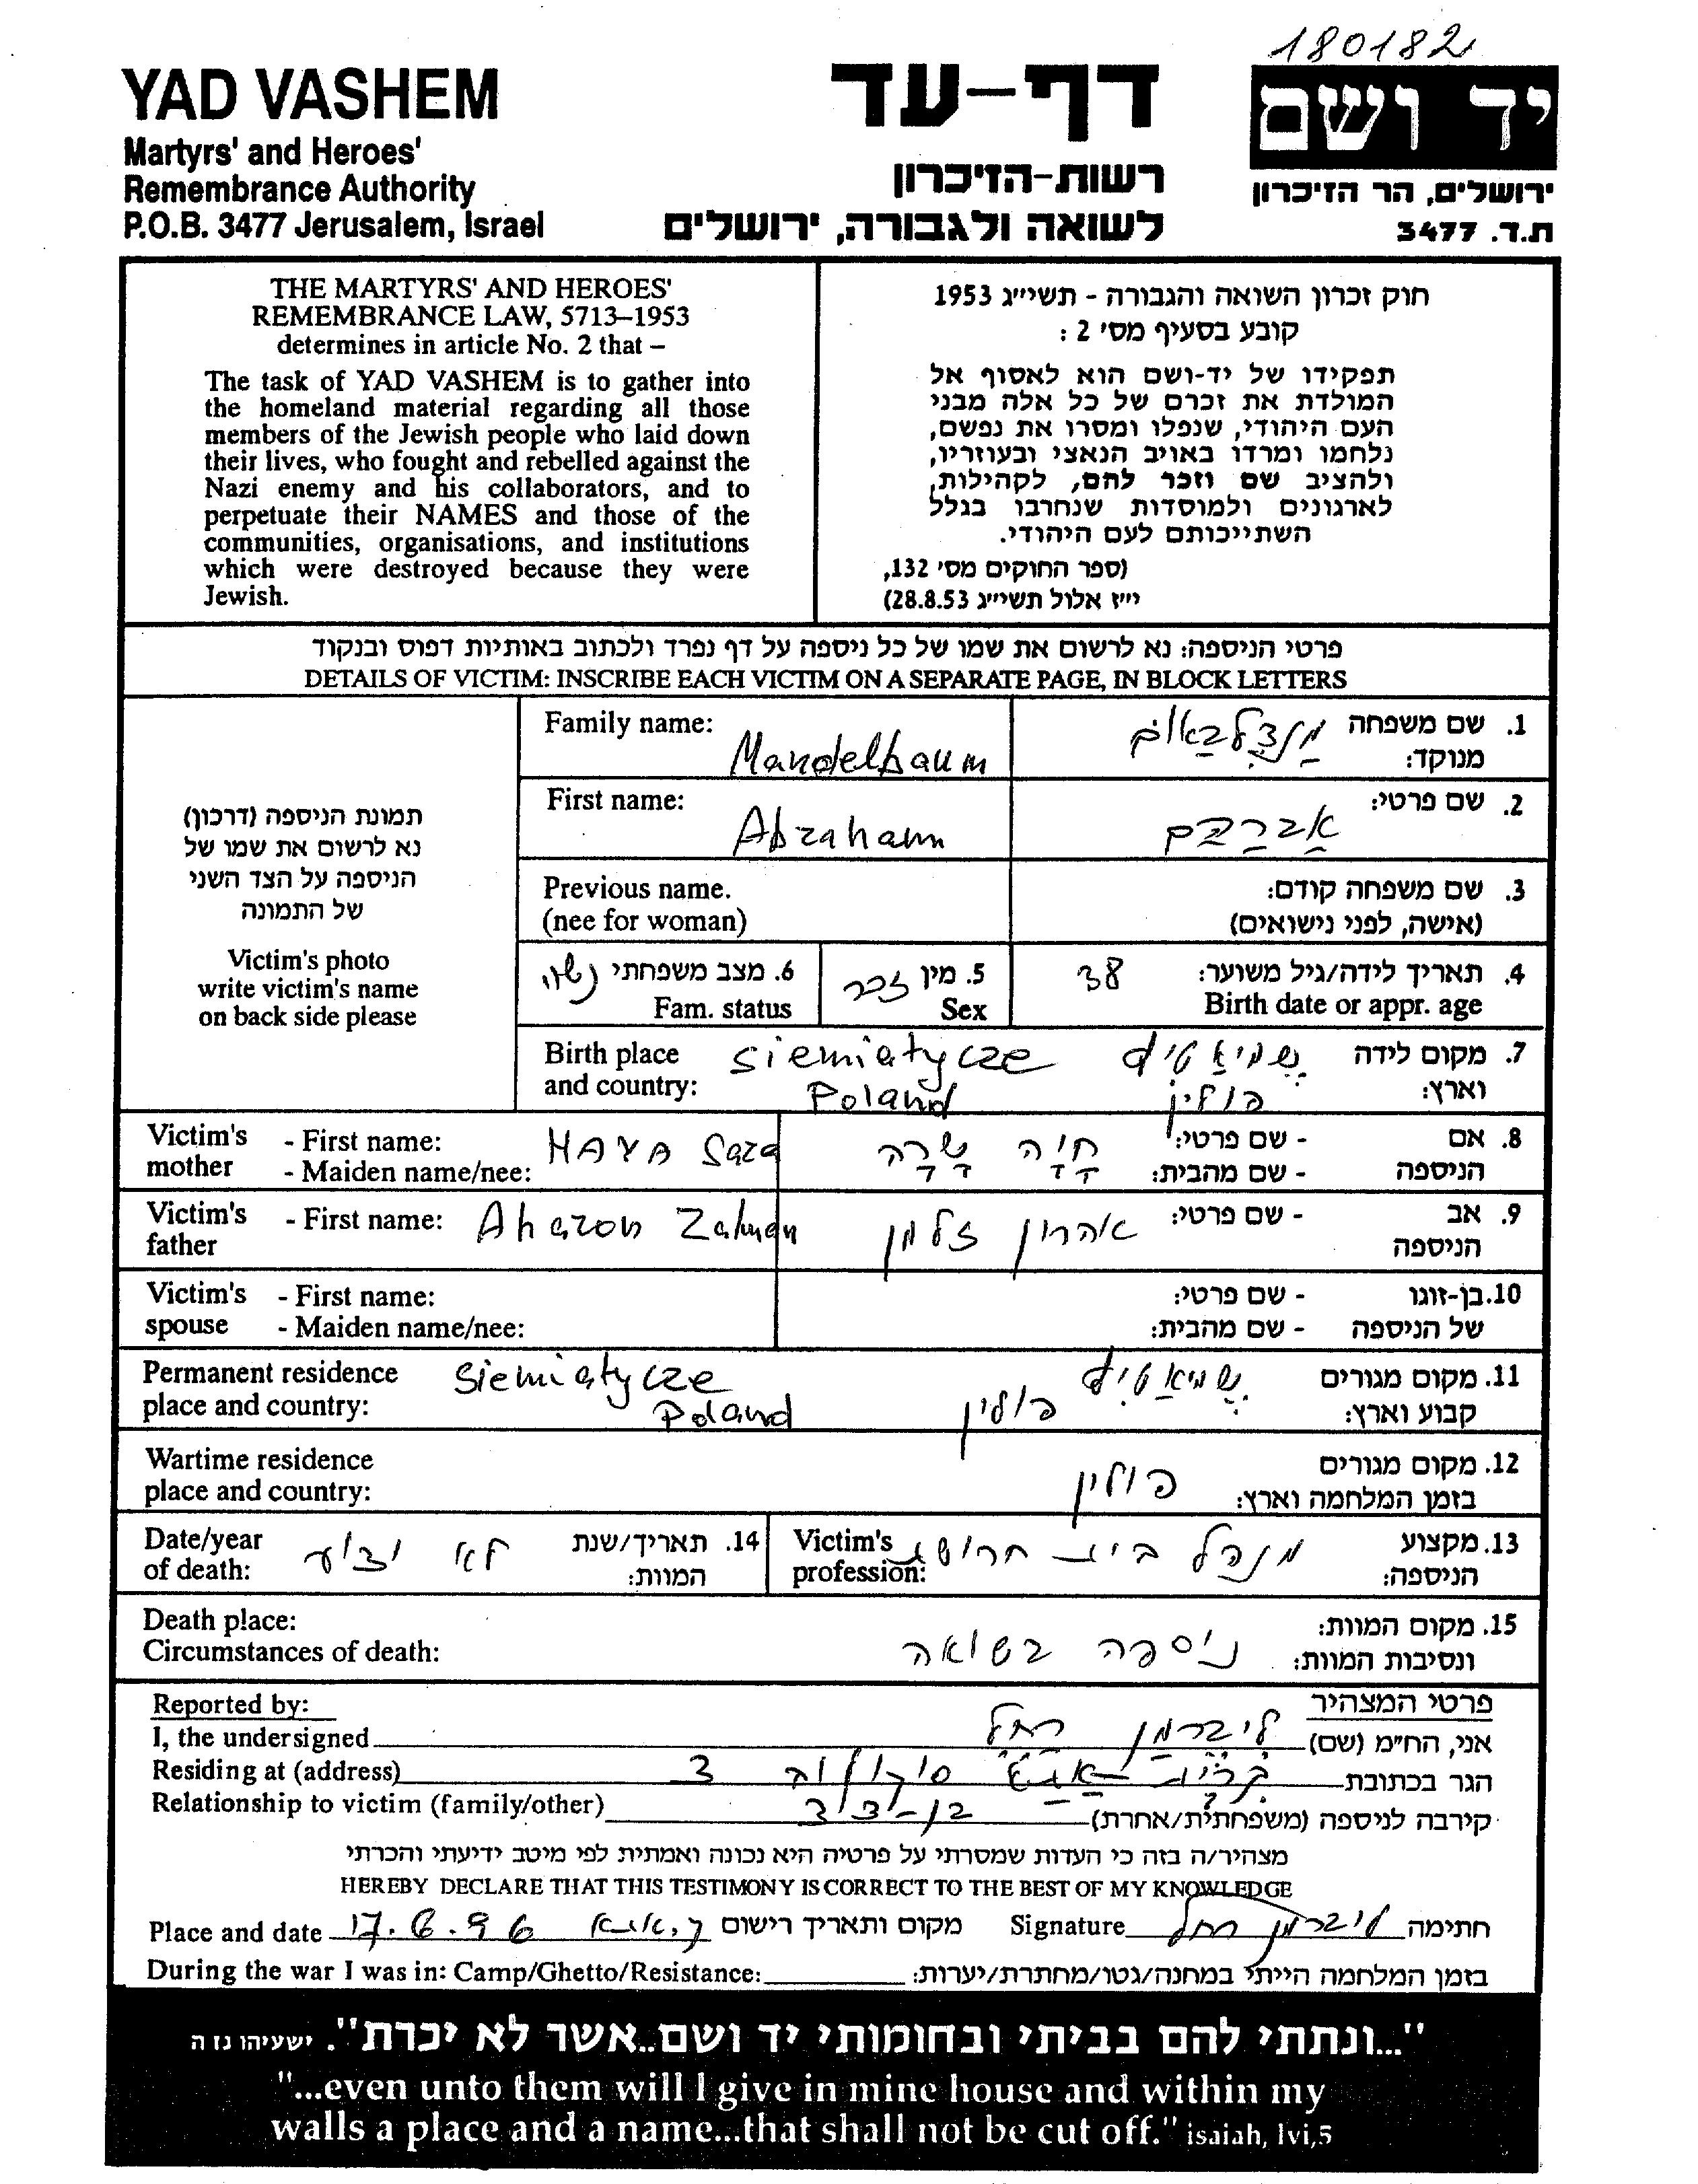 180182
YAD VASHEM
Martyrs' and Heroes'
Remembrance Authority
P.O.B. 3477 Jerusalem, Israel
דף-עד
רשות-הזיכרון
לשואה ולגבורה, ירושלים
יד ושם
ירושלים, הר הזיכרון
ת.ד. 3477
THE MARTYRS' AND HEROES'
REMEMBRANCE LAW, 5713–1953
determines in article No. 2 that –
The task of YAD VASHEM is to gather into
the homeland material regarding all those
members of the Jewish people who laid down
their lives, who fought and rebelled against the
Nazi enemy and his collaborators, and to
perpetuate their NAMES and those of the
communities, organisations, and institutions
which were destroyed because they were
Jewish.
חוק זכרון השואה והגבורה - תשי״ג 1953
קובע בסעיף מס׳ 2 :
תפקידו של יד-ושם הוא לאסוף אל
המולדת את זכרם של כל אלה מבני
העם היהודי, שנפלו ומסרו את נפשם,
נלחמו ומרדו באויב הנאצי ובעוזריו,
ולהציב שם וזכר להם, לקהילות,
לארגונים ולמוסדות שנחרבו בגלל
השתייכותם לעם היהודי.
(ספר החוקים מס׳ 132,
י״ז אלול תשי״ג 28.8.53)
פרטי הניספה: נא לרשום את שמו של כל ניספה על דף נפרד ולכתוב באותיות דפוס ובנקוד
DETAILS OF VICTIM: INSCRIBE EACH VICTIM ON A SEPARATE PAGE, IN BLOCK LETTERS
תמונת הניספה (דרכון)
נא לרשום את שמו של
הניספה על הצד השני
של התמונה
Victim's photo
write victim's name
on back side please
Family name: Mandelbaum
1. שם משפחה מנוקד: מַנְדֶלְבַּאוּם
First name: Abraham
2. שם פרטי: אַבְרַהַם
Previous name.
(nee for woman)
3. שם משפחה קודם:
(אישה, לפני נישואים)
6. מצב משפחתי נשוי
Fam. status
5. מין זכר
Sex
4. תאריך לידה/גיל משוער: 38
Birth date or appr. age
Birth place and country: Siemiatycze Poland
7. מקום לידה וארץ: שמיאטיץ פולין
Victim's mother - First name: HAYA Sara
- Maiden name/nee:
8. אם הניספה - שם פרטי: חיה שרה
- שם מהבית:
Victim's father - First name: Aharon Zalman
9. אב הניספה - שם פרטי: אהרון זלמן
Victim's spouse - First name:
- Maiden name/nee:
10. בן-זוגו של הניספה - שם פרטי:
- שם מהבית:
Permanent residence place and country: Siemiatycze Poland
11. מקום מגורים קבוע וארץ: שמיאטיץ פולין
Wartime residence
place and country:
12. מקום מגורים בזמן המלחמה וארץ: פולין
Date/year of death:
14. תאריך/שנת המוות: לא ידוע
Victim's profession:
13. מקצוע הניספה: מנהל בית חרושת
Death place:
Circumstances of death:
15. מקום המוות:
ונסיבות המוות: ניספה בשואה
Reported by:
פרטי המצהיר
I, the undersigned
אני, הח״מ (שם) ליברמן רחל
Residing at (address)
הגר בכתובת קרית-אתא סוקולוב 3
Relationship to victim (family/other)
קירבה לניספה (משפחתית/אחרת) בן-דוד
מצהיר/ה בזה כי העדות שמסרתי על פרטיה היא נכונה ואמתית לפי מיטב ידיעתי והכרתי
HEREBY DECLARE THAT THIS TESTIMONY IS CORRECT TO THE BEST OF MY KNOWLEDGE
Place and date 17.6.96 ק.אתא מקום ותאריך רישום
Signature ליברמן רחל חתימה
During the war I was in: Camp/Ghetto/Resistance:
בזמן המלחמה הייתי במחנה/גטו/מחתרת/יערות:
"...ונתתי להם בביתי ובחומותי יד ושם...אשר לא יכרת". ישעיהו נז ה
"...even unto them will I give in mine house and within my
walls a place and a name...that shall not be cut off." isaiah, lvi,5